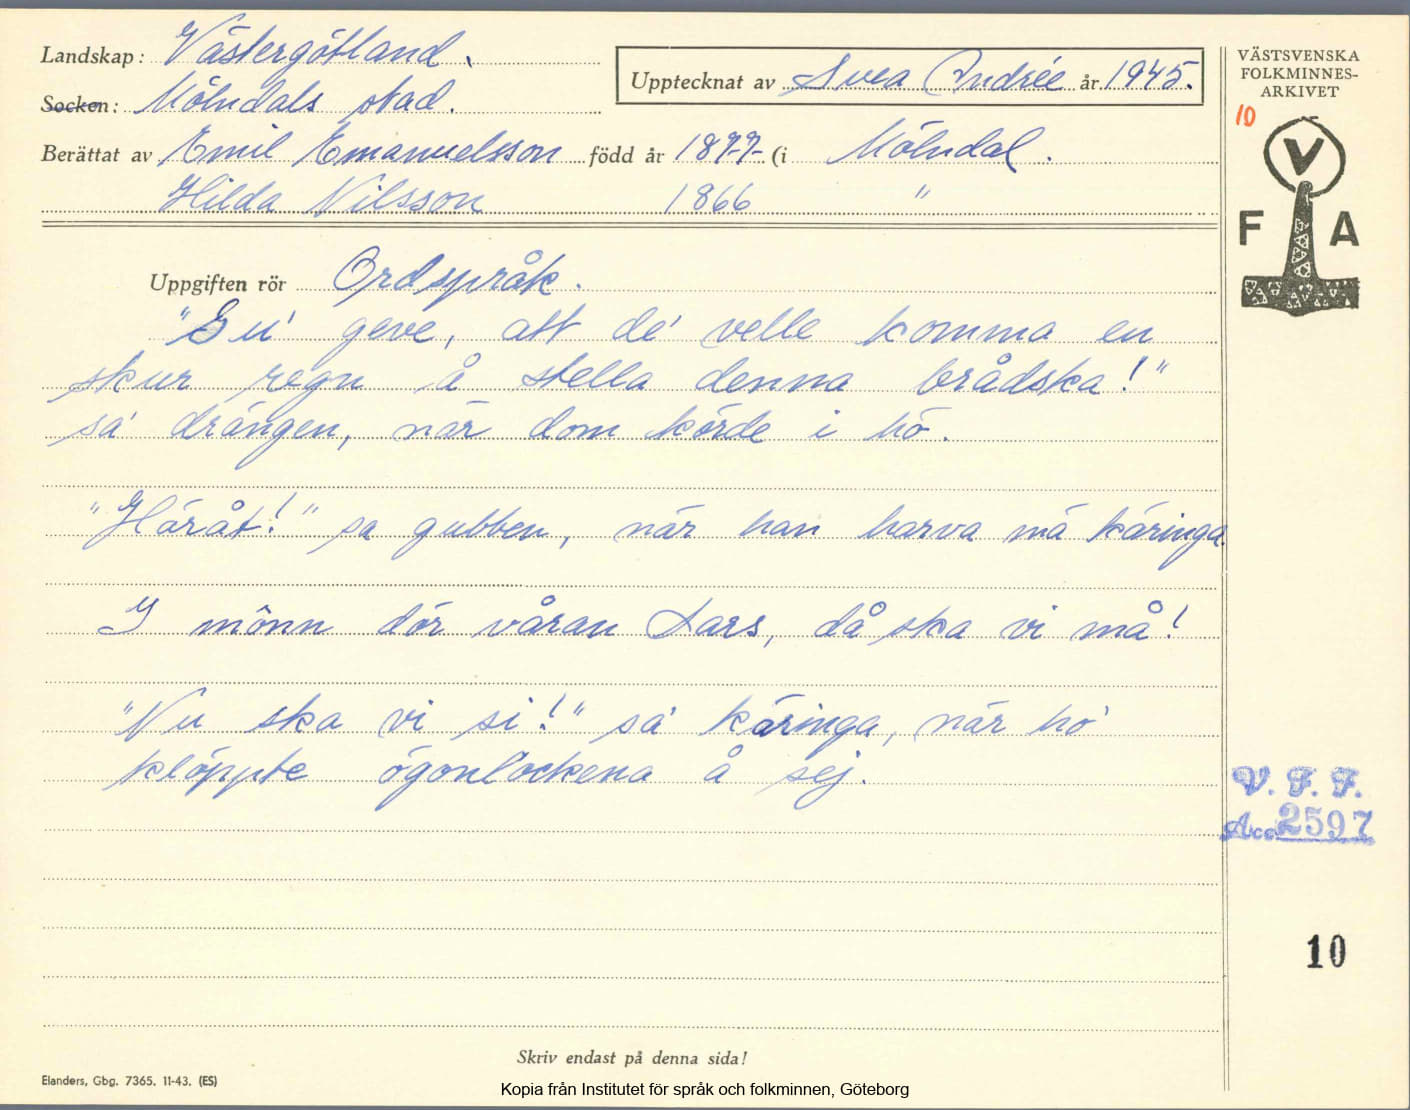 Landskap: Västergötland.
Upptecknat av Svea Andrée år 1945.
Socken: Mölndals stad.
Berättat av Emil Emanuelsson född år 1877 (i Mölndal.
Hilda Nilsson 1866 "
Uppgiften rör Ordspråk.
"Gu' geve, att de' velle komma en
skur regn å stella denna brådska!"
sa' drängen, när dom körde i hö.
"Håråt!" sa gubben, när han harva mä käringa.
I mônn dör våran Lars, då ska vi må!
"Nu ska vi si!" sa' käringa, när ho'
klöppte ögonlockena å sej.
Skriv endast på denna sida!
Elanders, Gbg. 7365. 11-43. (ES)
Kopia från Institutet för språk och folkminnen, Göteborg
VÄSTSVENSKA
FOLKMINNES-
ARKIVET
10
V
F A
V. F. F.
Acc 2597
10